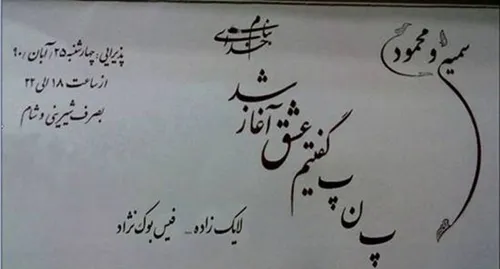 بنام خدای
سمیرا و محمود
پذیرایی: چهارشنبه ۲۵ / آبان / ۹۰
از ساعت ۱۸ الی ۲۲
بصرف شیرینی و شام
پ ن پ گفتیم عشق آغاز شد
لایک زاده ... فیس بوک نژاد